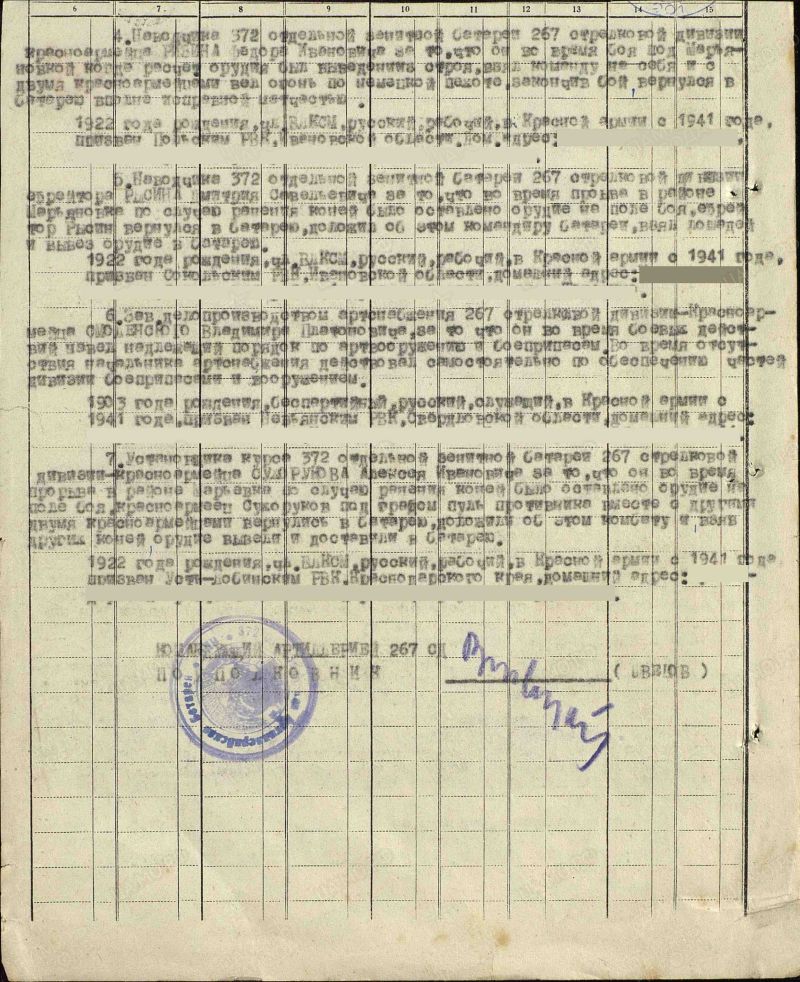 6 7 8 9 10 11 12 13 14 15
4.Наводчика 372 отдельной зенитной батареи 267 стрелковой дивизии
красноармейца Федора Ивановича за то,что он во время боя под Марья-
новкой когда расчет орудия был выведен из строя,взял команду на себя и с
двумя красноармейцами вел огонь по немецкой пехоте,закончив бой вернулся в
батарею вполне исправной матчастью.
1922 года рождения,чл.ВЛКСМ,русский,рабочий,в Красной армии с 1941 года,
призван РВК,Ивановской области.Дом.адрес:
5.Наводчика 372 отдельной зенитной батареи 267 стрелковой дивизии
ефрейтора РЫСИНА Дмитрия Савельевича за то,что во время прорыва в районе
Марьяновка по случаю ранения коней было оставлено орудие на поле боя,ефрей
тор Рысин вернулся в батарею,доложил об этом командиру батареи,взял лошадей
и вывез орудие в батарею.
1922 года рождения,чл.ВЛКСМ,русский,рабочий,в Красной армии с 1941 года,
призван Сокольским РВК,Ивановской области,домашний адрес:
6.Зав.делопроизводством артснабжения 267 стрелковой дивизии-Красноар-
мейца СМОЛЕНСКОГО Владимира Платоновича,за то что он во время боевых дейст-
вий навел надлежащий порядок по артвооружению и боеприпасам.Во время отсут-
ствия начальника артснабжения действовал самостоятельно по обеспечению частей
дивизии боеприпасами и вооружением.
1903 года рождения,беспартийный,русский,служащий,в Красной армии с
1941 года,призван Невьянским РВК,Свердловской области,домашний адрес:
7.Установщика курса 372 отдельной зенитной батареи 267 стрелковой
дивизии-красноармейца СУХОРУКОВА Алексея Ивановича за то,что он во время
прорыва в районе Марьевка по случаю ранения коней было оставлено орудие на
поле боя,красноармеец Сухоруков под градом пуль противника вместе с другими
двумя красноармейцами вернулись в батарею,доложили об этом комбату и взяв
других коней орудие вывели и доставили в батарею.
1922 года рождения,чл.ВЛКСМ,русский,рабочий,в Красной армии с 1941 года
призван Усть-Лобинским РВК,Краснодарского края,домашний адрес:
КОМАНДУЮЩИЙ АРТИЛЛЕРИЕЙ 267 СД
ПОДПОЛКОВНИК ( ШВЕЦОВ )